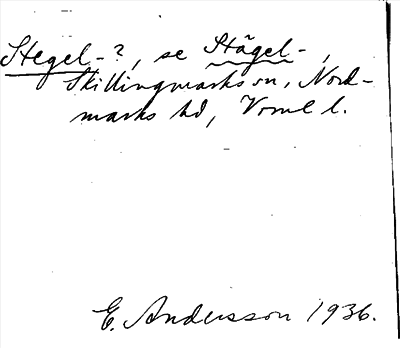 Stegel-?, se Stägel-,
Skillingmarks sn, Nord-
marks hd, Vrml l.
E. Andersson 1936.